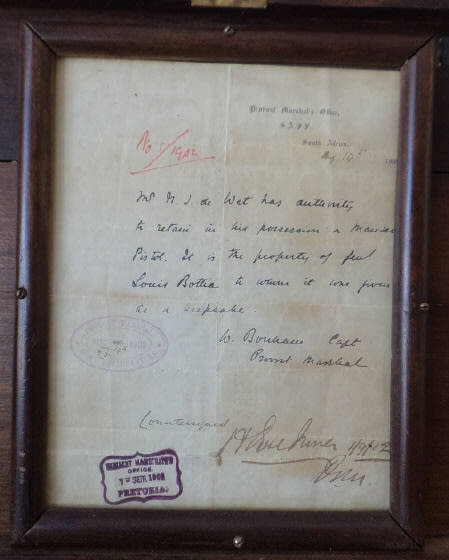 Provost Marshal's Office,
South Africa.
Aug 19th
No: 1/1902
Mr N. J. de Wet has authority
to retain in his possession a Mauser
Pistol. It is the property of Genl
Louis Botha to whom it was given
as a keepsake.
W. Bonham Capt
Provost Marshal
Countersigned
RESIDENT MAGISTRATE'S
OFFICE.
PRETORIA.